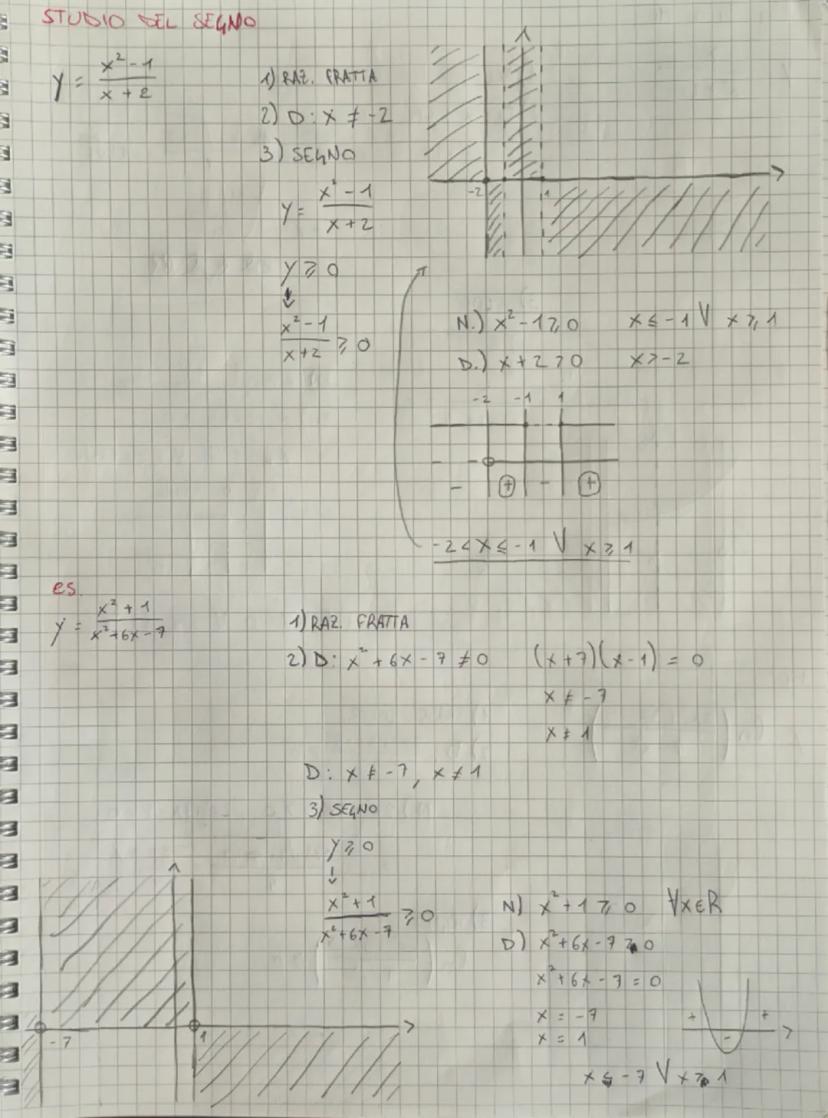 STUDIO DEL SEGNO
y = (x² - 1)/(x + 2)
1) RAZ. FRATTA
2) D: x ≠ -2
3) SEGNO
y = (x² - 1)/(x + 2)
y ≥ 0
↓
(x² - 1)/(x + 2) ≥ 0
-2 1
N.) x² - 1 ≥ 0 x ≤ -1 ∨ x ≥ 1
D.) x + 2 > 0 x > -2
-2 -1 1
- + - +
-2 < x ≤ -1 ∨ x ≥ 1
es.
y = (x² + 1)/(x² + 6x - 7)
1) RAZ. FRATTA
2) D: x² + 6x - 7 ≠ 0 (x + 7)(x - 1) = 0
x ≠ -7
x ≠ 1
D: x ≠ -7, x ≠ 1
3) SEGNO
y ≥ 0
↓
(x² + 1)/(x² + 6x - 7) ≥ 0
N) x² + 1 ≥ 0 ∀x∈R
D) x² + 6x - 7 > 0
x² + 6x - 7 = 0
x = -7
x = 1
+ - +
x < -7 ∨ x > 1
-7 1